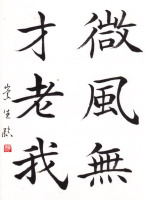 微風無
才老我